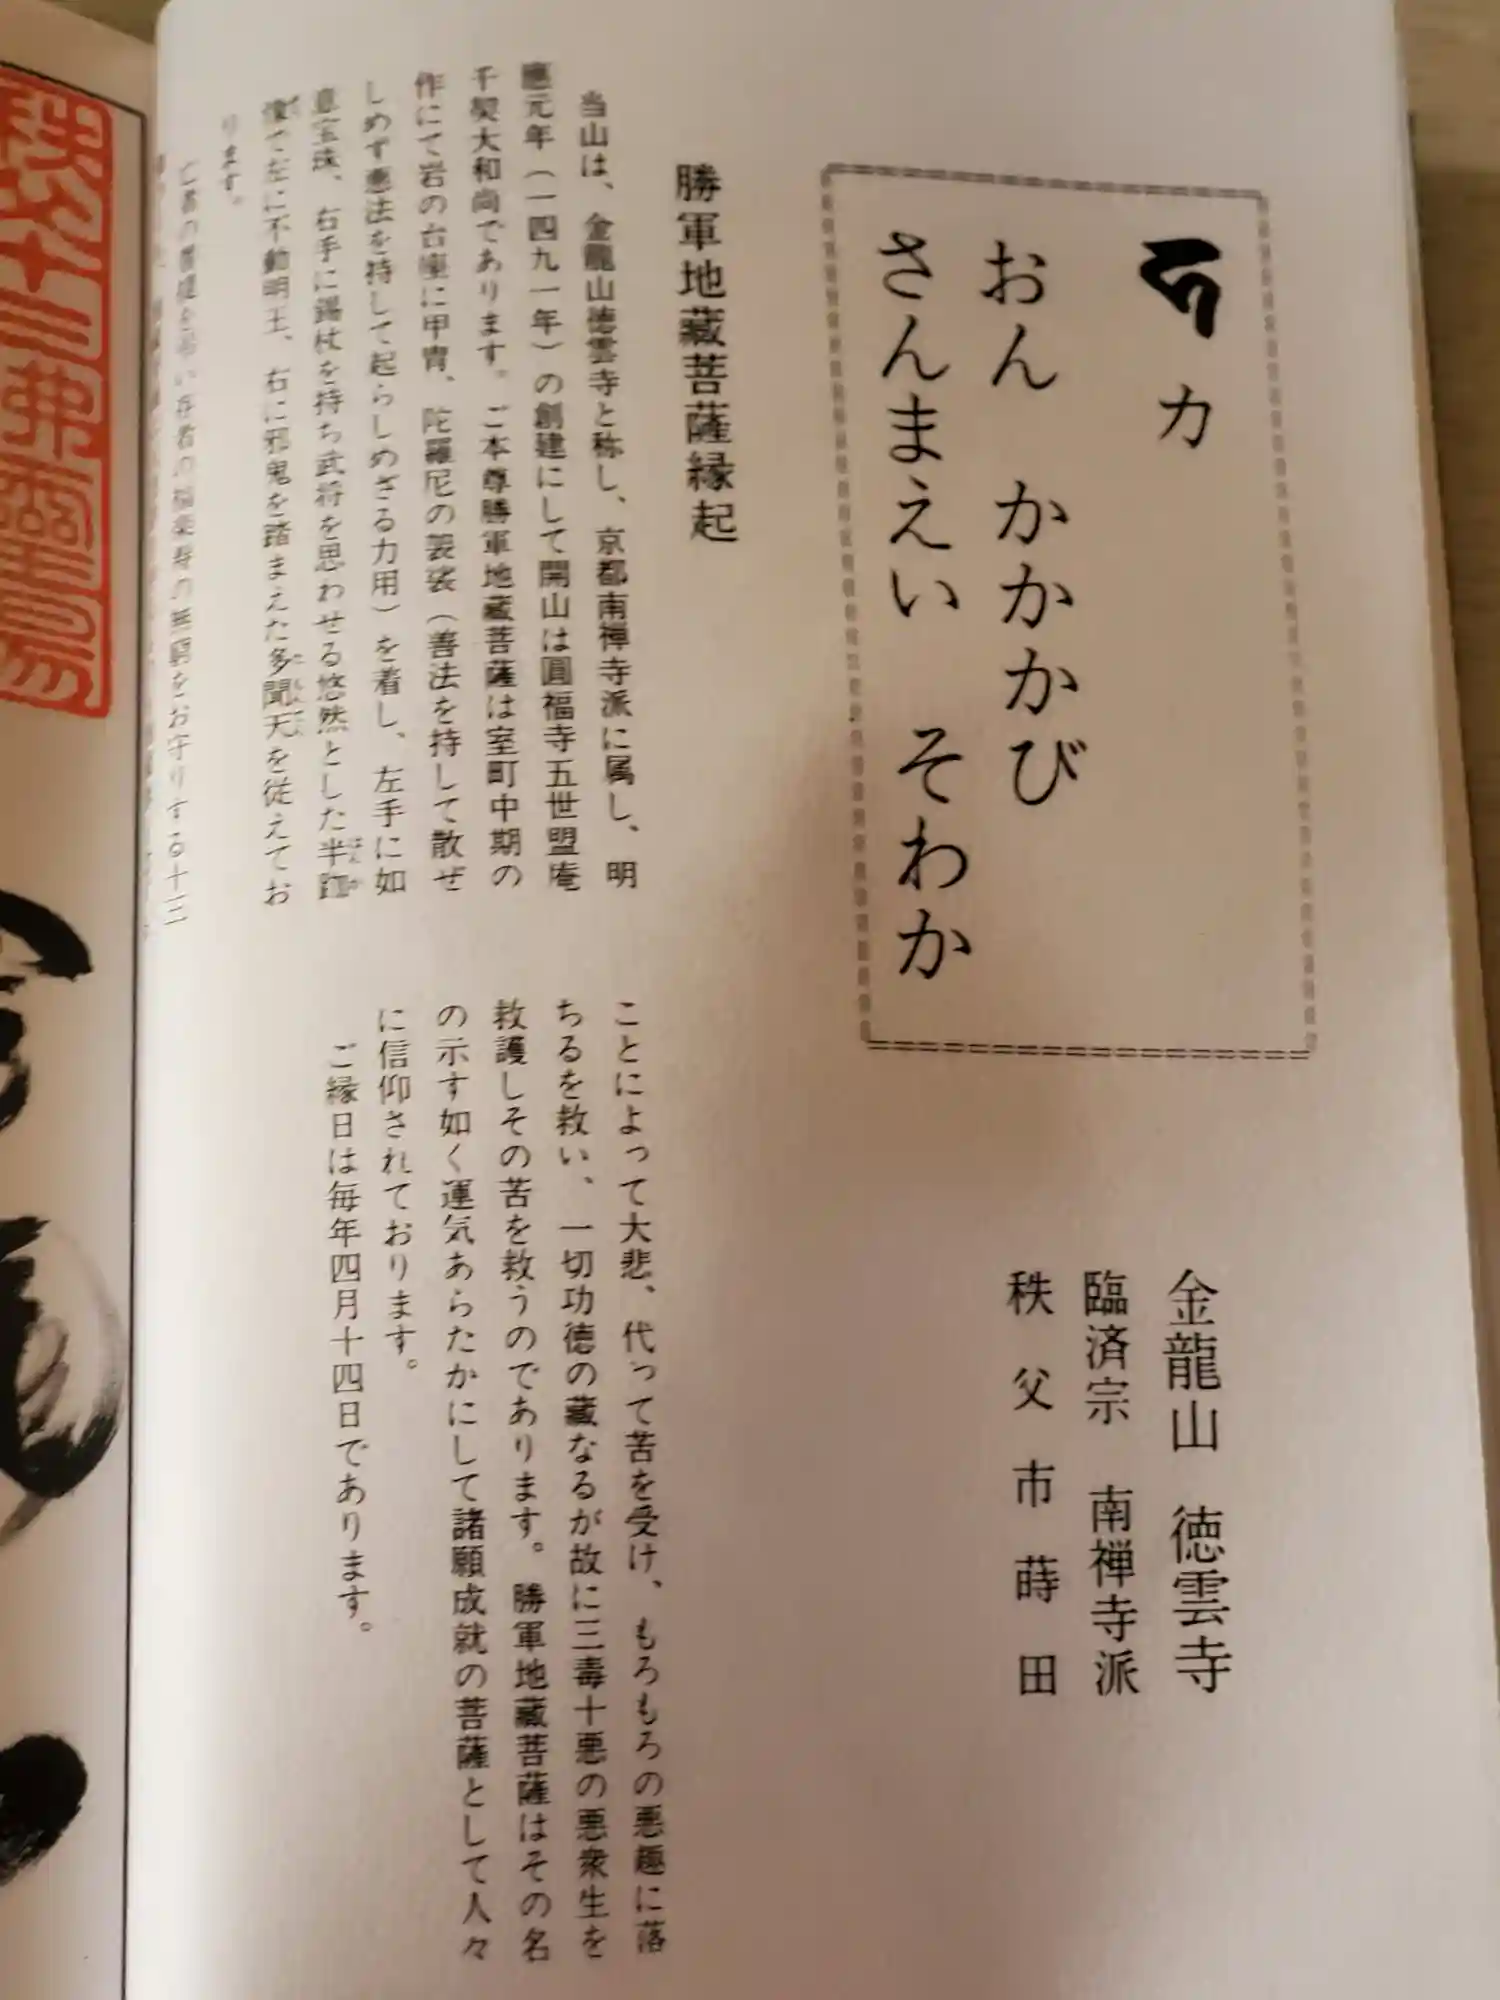 カ
おん　かかかび
さんまえい　そわか
金龍山　徳雲寺
臨済宗　南禅寺派
秩父市蒔田
勝軍地蔵菩薩縁起
当山は、金龍山徳雲寺と称し、京都南禅寺派に属し、明
應元年（一四九一年）の創建にして開山は圓福寺五世盟庵
千契大和尚であります。ご本尊勝軍地蔵菩薩は室町中期の
作にて岩の台座に甲冑、陀羅尼の袈裟（善法を持して散ぜ
しめず悪法を持して起らしめざる力用）を着し、左手に如
意宝珠、右手に錫杖を持ち武将を思わせる悠然とした半跏
像で左に不動明王、右に邪鬼を踏まえた多聞天を従えてお
ります。
亡者の菩提を弔い在者の福楽寿の無窮をお守りする十三
ことによって大悲、代って苦を受け、もろもろの悪趣に落
ちるを救い、一切功徳の蔵なるが故に三毒十悪の悪衆生を
救護しその苦を救うのであります。勝軍地蔵菩薩はその名
の示す如く運気あらたかにして諸願成就の菩薩として人々
に信仰されております。
ご縁日は毎年四月十四日であります。